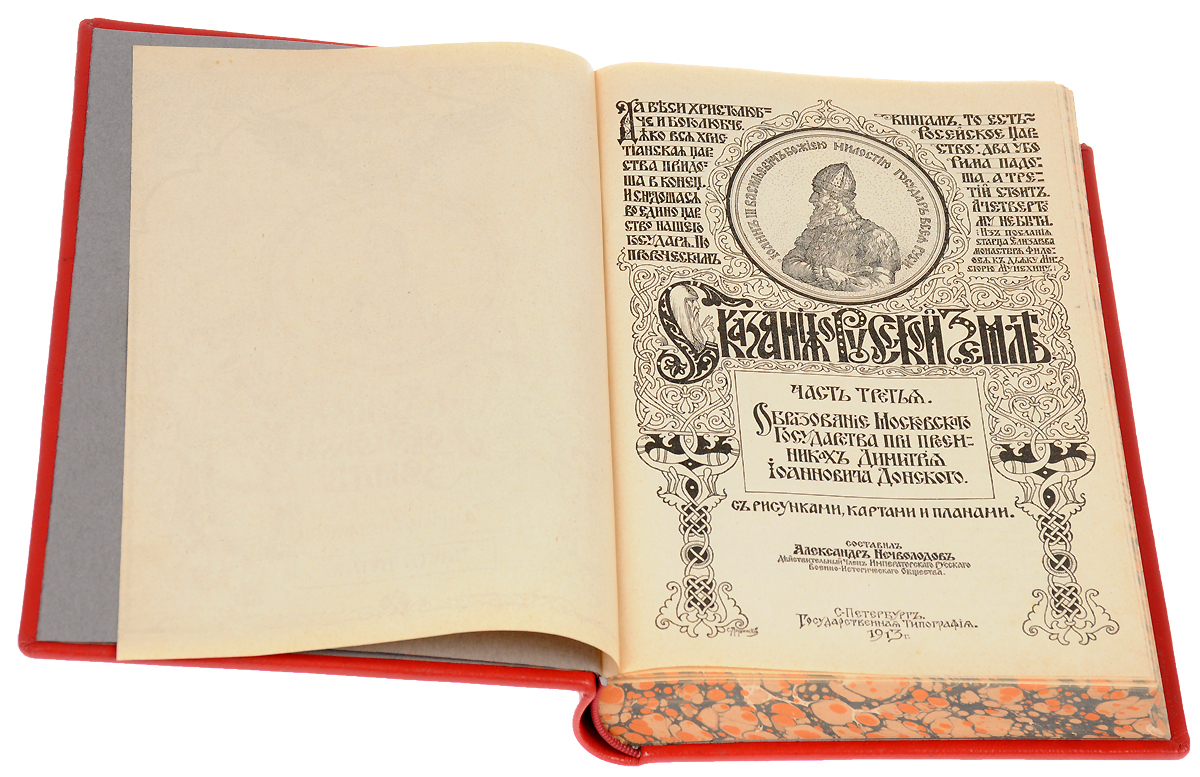 Да вѣси христолюб-
че и боголюбче
яко вся хрис-
тіанская цар
ства придо-
ша в конец.
и снидошася
во едино цар
ство нашего
государя. По
пророческимъ
книгамъ, то есть
Росейское цар
ство: два убо
Рима падо-
ша, а тре-
тій стоитъ.
а четверто
му не быти.
Изъ посланія
старца Елизаева
монастыря Фило-
ѳея къ дьяку Ми-
сюрю Мунехину.
Іоаннъ III Васильевичъ Божіею милостію государь всея Руси
Сказанія о Русской Землѣ
Часть третья.
Образованіе Московскаго
Государства при преем-
никахъ Димитрія
Іоанновича Донского.
Съ рисунками, картами и планами.
составилъ
Александръ Нечволодовъ
Действительный Членъ Императорскаго Русскаго
Военно-Историческаго Общества.
С-Петербургъ.
Государственная Типографія.
1913 г.